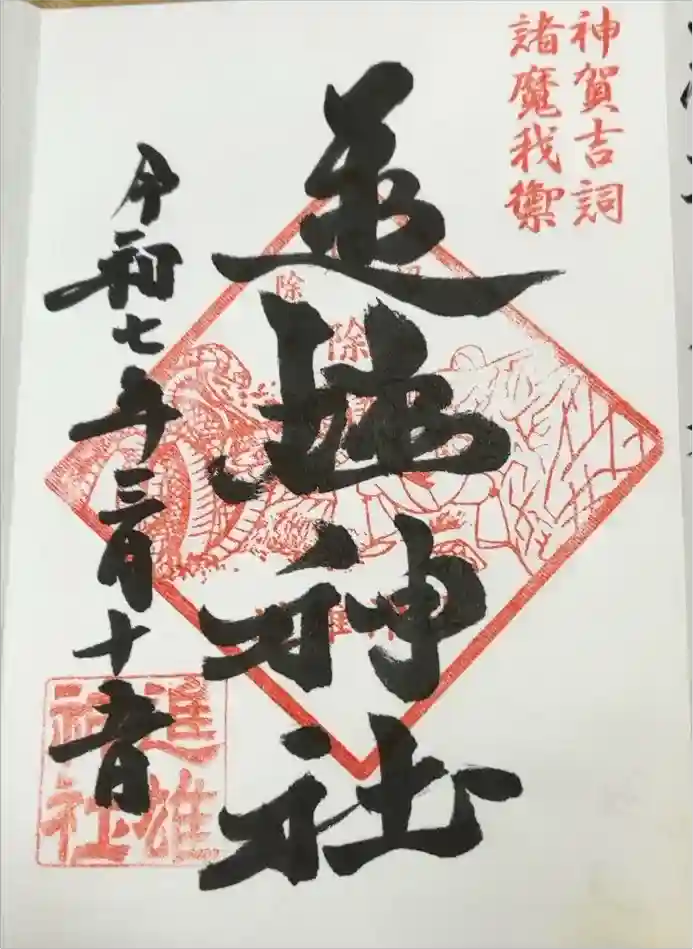 神賀吉詞
諸魔我禦
進雄神社
除
除
令和七年三月十五日
進雄
神社